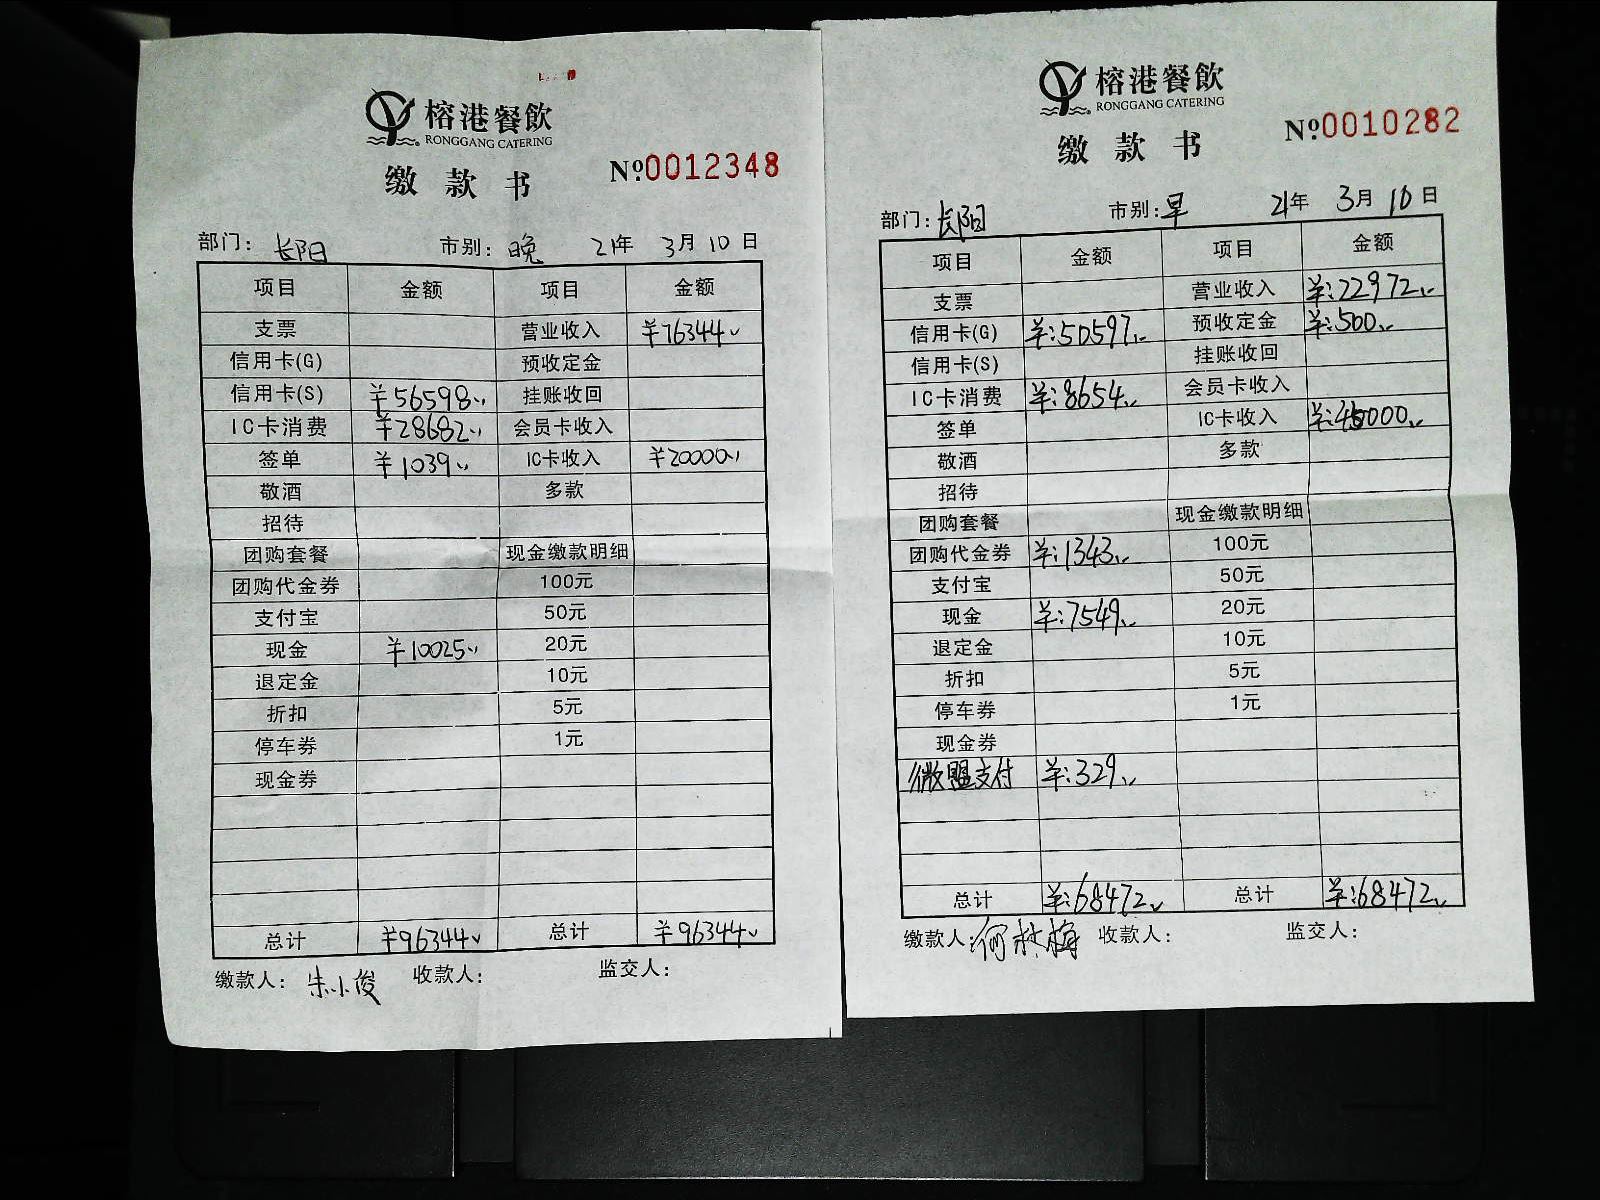 榕港餐飲
RONGGANG CATERING
缴款书
№0012348
部门：长阳 市别：晚 21年 3月 10日
项目 金额 项目 金额
支票 营业收入 ¥76344
信用卡(G) 预收定金
信用卡(S) ¥56598 挂账收回
IC卡消费 ¥28682 会员卡收入
签单 ¥1039 IC卡收入 ¥20000
敬酒 多款
招待
团购套餐 现金缴款明细
团购代金券 100元
支付宝 50元
现金 ¥10025 20元
退定金 10元
折扣 5元
停车券 1元
现金券
总计 ¥96344 总计 ¥96344
缴款人：朱小俊 收款人： 监交人：
榕港餐飲
RONGGANG CATERING
缴款书
№0010282
部门：长阳 市别：早 21年 3月 10日
项目 金额 项目 金额
支票 营业收入 ¥:22972
信用卡(G) ¥:50597 预收定金 ¥:500
信用卡(S) 挂账收回
IC卡消费 ¥:8654 会员卡收入
签单 IC卡收入 ¥:45000
敬酒 多款
招待
团购套餐 现金缴款明细
团购代金券 ¥:1343 100元
支付宝 50元
现金 ¥:7549 20元
退定金 10元
折扣 5元
停车券 1元
现金券
微盟支付 ¥:329
总计 ¥:68472 总计 ¥:68472
缴款人：何林梅 收款人： 监交人：